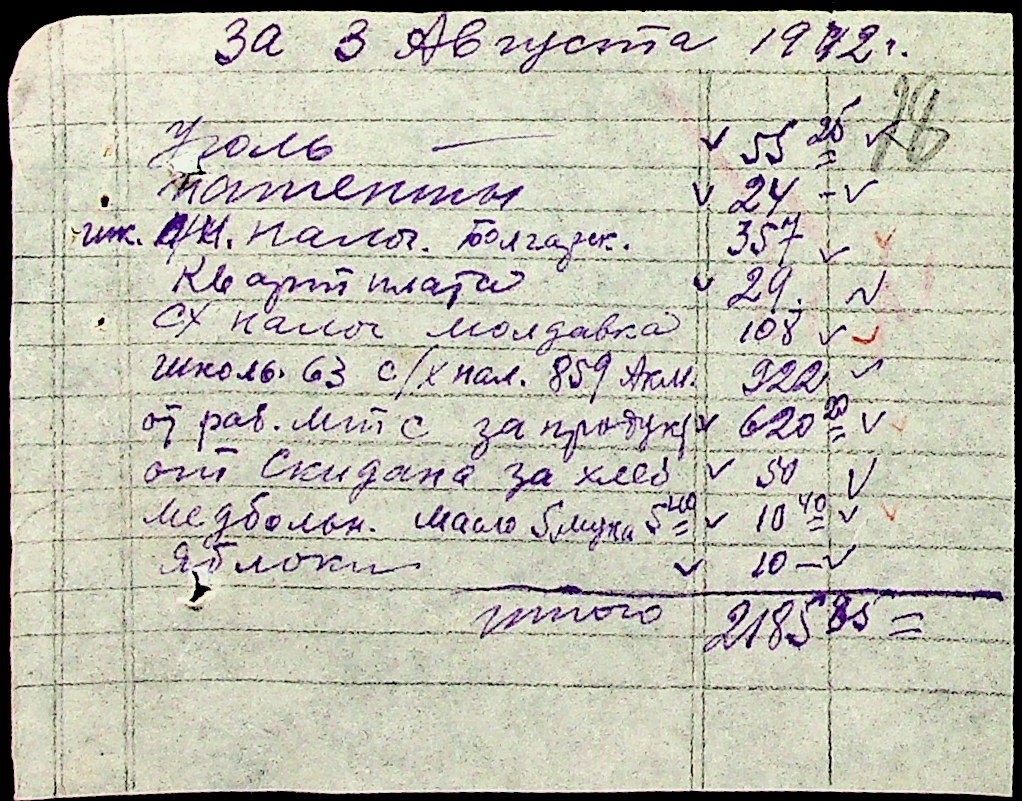 За 3 Августа 1942г.
Уголь — 55 25
патенты 24 -
шк. с/х. налог. Болгарск. 357
Квартплата 29.
СХ налог молдавка 108
школь. 63 с/х нал. 859 Акм. 922
от раб. мтс за продукт 620 20
от Скидана за хлеб 50
медбольн. масло 5, мука 5 40 10 40
Яблоки 10 —
итого 2185 85 =